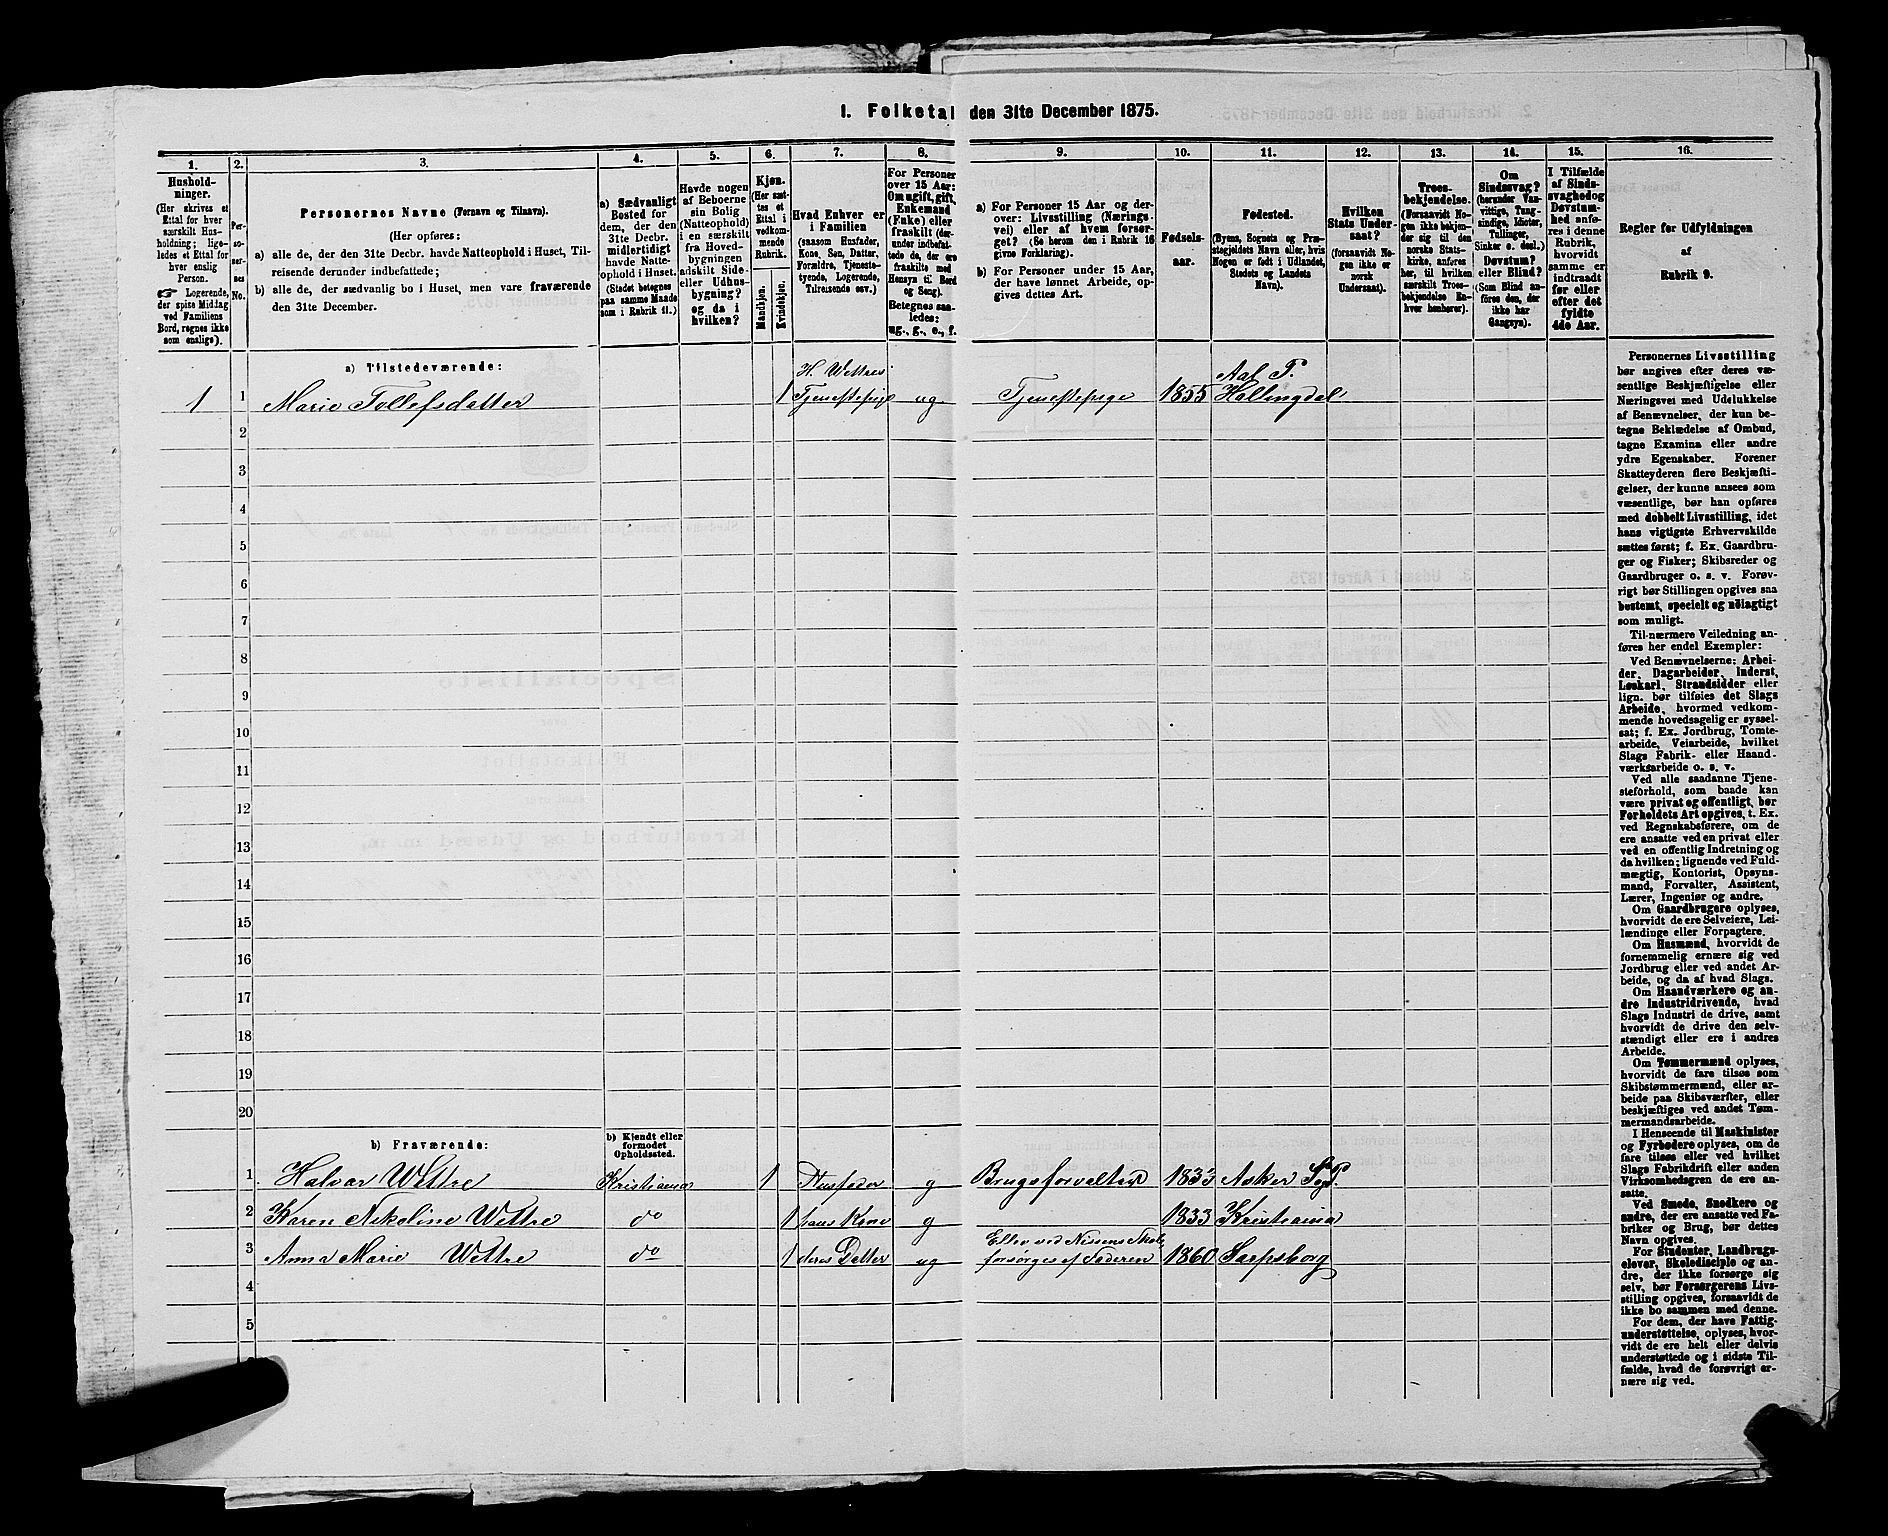 1. Folketal den 31te December 1875.
1. 2. 3. 4. 5. 6. 7. 8. 9. 10. 11. 12. 13. 14. 15. 16.
Hushold-
ninger.
(Her skrives et
Ettal for hver
særskilt Hus-
holdning; lige-
ledes et Ettal for
hver enslig
Person.
☞ Logerende,
der spise Middag
ved Familiens
Bord, regnes ikke
som enslige).
Per-
so-
ner-
nes
No.
Personernes Navne (Fornavn og Tilnavn).
(Her opføres:
a) alle de, der den 31te Decbr. havde Natteophold i Huset, Til-
reisende derunder indbefattede;
b) alle de, der sædvanlig bo i Huset, men vare fraværende
den 31te December.
a) Sædvanligt
Bosted for
dem, der den
31te Decbr.
midlertidigt
havde Natte-
ophold i Huset.
(Stedet betegnes
paa samme Maade
som i Rubrik 11.)
Havde nogen
af Beboerne
sin Bolig
(Natteophold)
i en særskilt
fra Hoved-
bygningen
adskilt Side-
eller Udhus-
bygning?
og da i
hvilken?
Kjøn.
(Her sæt-
tes et
Ettal i
vedkom-
mende
Rubrik.
Mandkjøn.
Kvindekjøn.
Hvad Enhver er
i Familien
(saasom Husfader,
Kone, Søn, Datter,
Forældre, Tjeneste-
tyende, Logerende,
Tilreisende osv.)
For Personer
over 15 Aar:
Om ugift, gift,
Enkemand
(Enke) eller
fraskilt (der-
under indbefat-
tede de, der ere
fraskilte med
Hensyn til Bord
og Seng).
Betegnes saa-
ledes:
ug., g., e., f.
a) For Personer 15 Aar og der-
over: Livsstilling (Nærings-
vei) eller af hvem forsør-
get? (Se herom den i Rubrik 16
givne Forklaring).
b) For Personer under 15 Aar,
der have lønnet Arbeide, op-
gives dettes Art.
Fødsels-
aar.
Fødested.
(Byens, Sognets og Præ-
stegjeldets Navn eller, hvis
Nogen er født i Udlandet,
Stedets og Landets
Navn).
Hvilken
Stats Under-
saat?
(forsaavidt No-
gen ikke er
norsk
Undersaat).
Troes-
bekjendelse.
(Forsaavidt No-
gen ikke bekjen-
der sig til den
norske Stats-
kirke, anføres
her, til hvilken
særskilt Troes-
bekjendelse En-
hver henhører).
Om
Sindssvag?
(herunder Van-
vittige, Tung-
sindige, Idioter,
Tullinger,
Sinker o. desl.)
Døvstum?
eller Blind?
(Som Blind an-
føres den, der
ikke har
Gangsyn).
I Tilfælde
af Sinds-
svaghed og
Døvstum-
hed anfø-
res i denne
Rubrik,
hvorvidt
samme er
indtraadt
før eller
efter det
fyldte
4de Aar.
Regler for Udfyldningen
af
Rubrik 9.
a) Tilstedeværende:
1 1 Marie Tollefsdatter 1 H. Wettres
Tjenestepige ug Tjenestepige 1855 Aal P.
Hallingdal
2
3
4
5
6
7
8
9
10
11
12
13
14
15
16
17
18
19
20
b) Fraværende:
b) Kjendt eller
formodet
Opholdssted.
1 Halvor Wettre Kristiania 1 Husfader g Brugsforvalter 1833 Asker Sogn
2 Karen Nikoline Wettre do 1 hans Kone g 1833 Kristiania
3 Anna Marie Wettre do 1 deres Datter ug Elev ved Nissens Skole
forsørges af Faderen 1860 Sarpsborg
4
5
Personernes Livsstilling
bør angives efter deres væ-
sentlige Beskjæftigelse eller
Næringsvei med Udelukkelse
af Benævnelser, der kun be-
tegne Beklædelse af Ombud,
tagne Examina eller andre
ydre Egenskaber. Forener
Skatteyderen flere Beskjæfti-
gelser, der kunne ansees som
væsentlige, bør han opføres
med dobbelt Livsstilling, idet
hans vigtigste Erhvervskilde
sættes først; f. Ex. Gaardbru-
ger og Fisker; Skibsreder og
Gaardbruger o. s. v. Forøv-
rigt bør Stillingen opgives saa
bestemt, specielt og nöiagtigt
som muligt.
Til nærmere Veiledning an-
føres her endel Exempler:
Ved Benævnelserne: Arbei-
der, Dagarbeider, Inderst,
Løskarl, Strandsidder eller
lign. bør tilføies det Slags
Arbeide, hvormed vedkom-
mende hovedsagelig er syssel-
sat; f. Ex. Jordbrug, Tomte-
arbeide, Veiarbeide, hvilket
Slags Fabrik- eller Haand-
værksarbeide o. s. v.
Ved alle saadanne Tjene-
steforhold, som baade kan
være privat og offentligt, bør
Forholdets Art opgives, t. Ex.
ved Regnskabsførere, om de
ere ansatte ved en privat eller
ved en offentlig Indretning og
da hvilken; lignende ved Fuld-
mægtig, Kontorist, Opsyns-
mand, Forvalter, Assistent,
Lærer, Ingeniør og andre.
Om Gaardbrugere oplyses,
hvorvidt de ere Selveiere, Lei-
lændinge eller Forpagtere.
Om Husmænd, hvorvidt de
fornemmelig ernære sig ved
Jordbrug eller ved andet Ar-
beide, og da af hvad Slags.
Om Haandværkere og an-
dre Industridrivende, hvad
Slags Industri de drive, samt
hvorvidt de drive den selv-
stændigt eller ere i andres
Arbeide.
Om Tømmermænd oplyses,
hvorvidt de fare tilsøs som
Skibstømmermænd, eller ar-
beide paa Skibsværfter, eller
beskjæftiges ved andet Tøm-
mermandsarbeide.
I Henseende til Maskinister
og Fyrbødere oplyses, om de
fare tilsøs eller ved hvilket
Slags Fabrikdrift eller anden
Virksomhedsgren de ere an-
satte.
Ved Smede, Snedkere og
andre, der ere ansatte ved Fa-
briker og Brug, bør dettes
Navn opgives.
For Studenter, Landbrugs-
elever, Skoledisciple og an-
dre, der ikke forsørge sig
selv, bør Forsørgerens Livs-
stilling opgives, forsaavidt de
ikke bo sammen med denne.
For dem, der have Fattig-
understøttelse, oplyses, hvor-
vidt de ere helt eller delvis
understøttede og i sidste Til-
fælde, hvad de forøvrigt er-
nære sig ved.